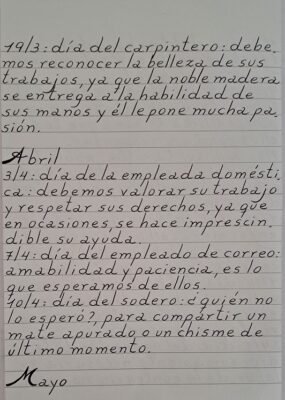 19/3: día del carpintero: debe.
mos reconocer la belleza de sus
trabajos, ya que la noble madera
se entrega a la habilidad de
sus manos y él le pone mucha pa.
sión.
Abril
3/4: día de la empleada domésti.
ca: debemos valorar su trabajo
y respetar sus derechos, ya que
en ocasiones, se hace imprescin.
dible su ayuda.
7/4: día del empleado de correo:
amabilidad y paciencia, es lo
que esperamos de ellos.
10/4: día del sodero: ¿quién no
lo esperó?, para compartir un
mate apurado o un chisme de
último momento.
Mayo